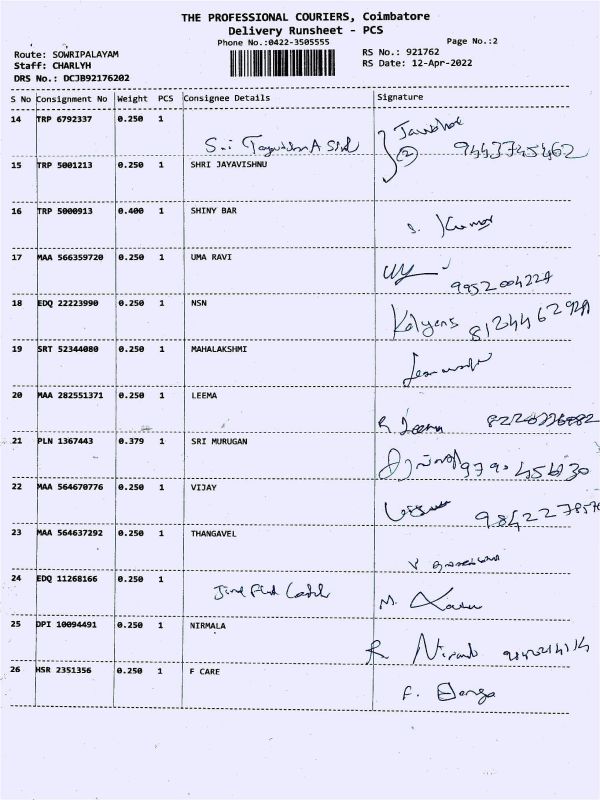 THE PROFESSIONAL COURIERS, Coimbatore
Delivery Runsheet - PCS
Phone No.:0422-3505555
Page No.:2
Route: SOWRIPALAYAM
Staff: CHARLYH
DRS No.: DCJB92176202
RS No.: 921762
RS Date: 12-Apr-2022
S No Consignment No Weight PCS Consignee Details Signature
14 TRP 6792337 0.250 1
2 9443745462
15 TRP 5001213 0.250 1 SHRI JAYAVISHNU
16 TRP 5000913 0.400 1 SHINY BAR
S. Kumar
17 MAA 566359720 0.250 1 UMA RAVI
18 EDQ 22223990 0.250 1 NSN
Kalyani
19 SRT 52344080 0.250 1 MAHALAKSHMI
20 MAA 282551371 0.250 1 LEEMA
R Leema
21 PLN 1367443 0.379 1 SRI MURUGAN
22 MAA 564670776 0.250 1 VIJAY
23 MAA 564637292 0.250 1 THANGAVEL
24 EDQ 11268166 0.250 1
M.
25 DPI 10094491 0.250 1 NIRMALA
R
26 HSR 2351356 0.250 1 F CARE
F.